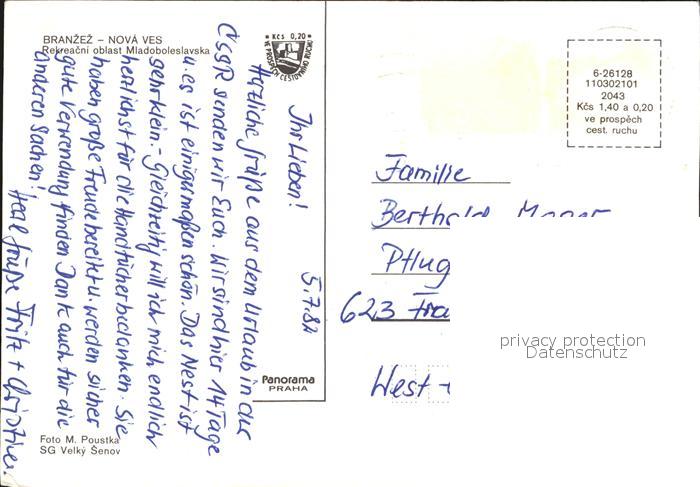 BRANŽEŽ – NOVÁ VES
Rekreační oblast Mladoboleslavska
Kčs 0,20
VE PROSPĚCH CESTOVNÍHO RUCHU
6-26128
110302101
2043
Kčs 1,40 a 0,20
ve prospěch
cest. ruchu
5.7.82
Ihr Lieben!
Herzliche Grüße aus dem Urlaub in der
ČSSR senden wir Euch. Wir sind hier 14 Tage
u. es ist einigermaßen schön. Das Nest ist
sehr klein. – Gleichzeitig will ich mich endlich
herzlichst für die Handtücher bedanken. Sie
haben große Freude bereitet u. werden sicher
gute Verwendung finden Dank auch für die
anderen Sachen!
Grüße Fritz + Christine.
Familie
Berthold
Pflug
623 Fra
West
privacy protection
Datenschutz
Panorama
PRAHA
Foto M. Poustka
SG Velký Šenov